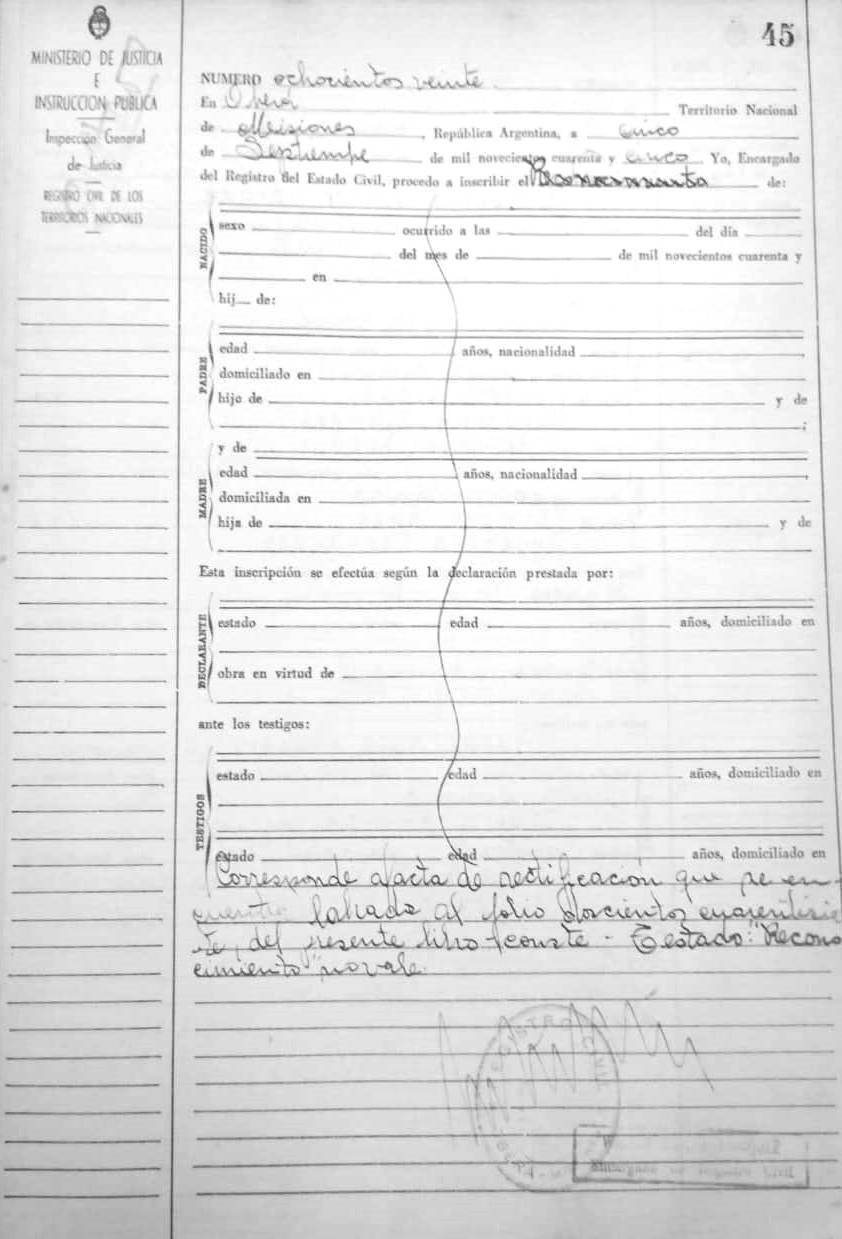 45
MINISTERIO DE JUSTICIA
E
INSTRUCCION PUBLICA
Inspección General
de Justicia
REGISTRO CIVIL DE LOS
TERRITORIOS NACIONALES
NUMERO ochocientos veinte
En Oberá Territorio Nacional
de Misiones, República Argentina, a cinco
de Septiembre de mil novecientos cuarenta y cinco Yo, Encargado
del Registro del Estado Civil, procedo a inscribir el Reconocimiento de:
NACIDO
sexo ocurrido a las del día
del mes de de mil novecientos cuarenta y
en
hij de:
PADRE
edad años, nacionalidad
domiciliado en
hijo de y de
;
MADRE
y de
edad años, nacionalidad
domiciliada en
hija de y de
Esta inscripción se efectúa según la declaración prestada por:
DECLARANTE
estado edad años, domiciliado en
obra en virtud de
ante los testigos:
TESTIGOS
estado edad años, domiciliado en
estado edad años, domiciliado en
Corresponde a acta de rectificación que se en-
cuentra labrada al folio doscientos cuarentisie-
te, del presente libro conste - Testado: "Recono
cimiento" no vale.
REGISTRO CIVIL
Encargado de Registro Civil